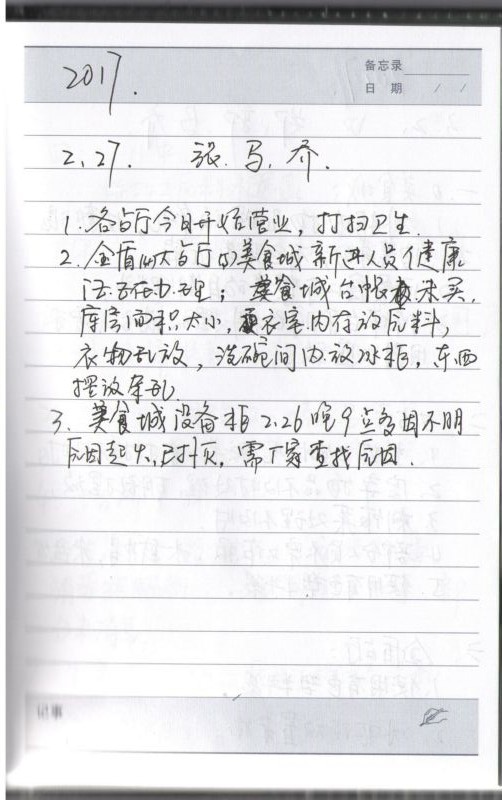 备忘录
日 期 / /
2017.
2.27. 张.马.乔.
1.各占厅今日开始营业,打扫卫生.
2.金盾 占厅 美食城新进人员健康
证正在办理;美食城台帐未买,
库房面积太小,更衣室内存放原料,
衣物乱放,洗碗间内放冰柜,东西
摆放杂乱.
3.美食城设备柜2.26晚9点多因不明
原因起火,已扑灭,需厂家查找原因.
记事